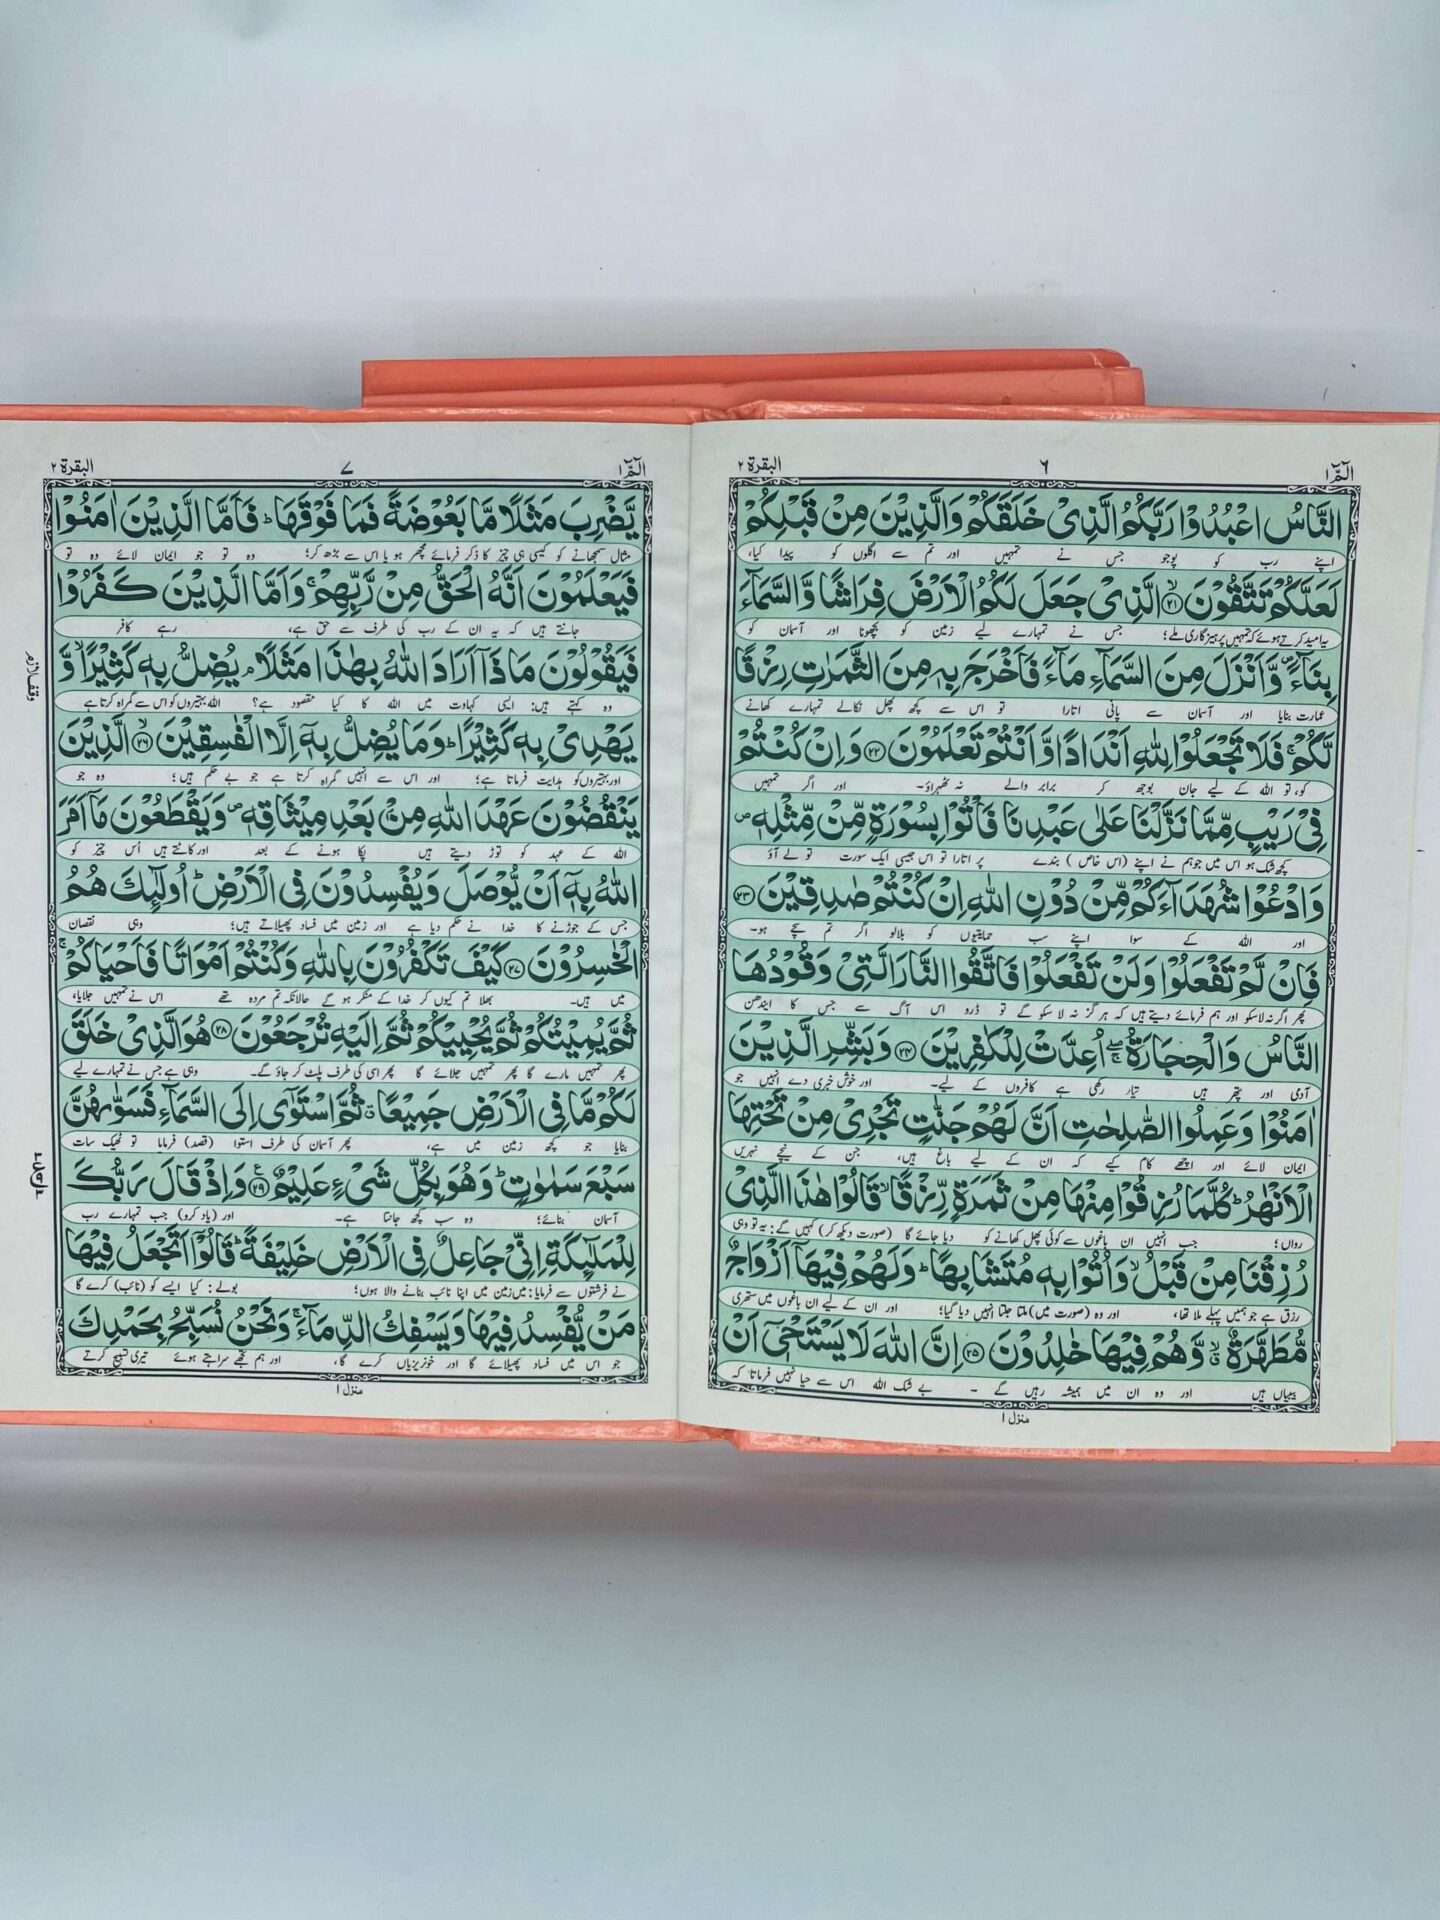 الٓمّٓ ١
٦
البقرة ٢
النَّاسُ اعْبُدُوْا رَبَّكُمُ الَّذِیْ خَلَقَكُمْ وَالَّذِیْنَ مِنْ قَبْلِكُمْ
اپنے رب کو پوجو جس نے تمہیں اور تم سے اگلوں کو پیدا کیا،
لَعَلَّكُمْ تَتَّقُوْنَ ۙ﴿۲۱﴾ الَّذِیْ جَعَلَ لَكُمُ الْاَرْضَ فِرَاشًا وَّالسَّمَآءَ
یہ امید کرتے ہوئے کہ تمہیں پرہیزگاری ملے؛ جس نے تمہارے لیے زمین کو بچھونا اور آسمان کو
بِنَآءً ۪ وَّاَنْزَلَ مِنَ السَّمَآءِ مَآءً فَاَخْرَجَ بِهٖ مِنَ الثَّمَرٰتِ رِزْقًا
عمارت بنایا اور آسمان سے پانی اتارا تو اس سے کچھ پھل نکالے تمہارے کھانے
لَّكُمْ ۚ فَلَا تَجْعَلُوْا لِلّٰهِ اَنْدَادًا وَّاَنْتُمْ تَعْلَمُوْنَ ﴿۲۲﴾ وَاِنْ كُنْتُمْ
کو، تو اللہ کے لیے جان بوجھ کر برابر والے نہ ٹھہراؤ۔ اور اگر تمہیں
فِیْ رَیْبٍ مِّمَّا نَزَّلْنَا عَلٰی عَبْدِنَا فَاْتُوْا بِسُوْرَةٍ مِّنْ مِّثْلِهٖ ۪
کچھ شک ہو اس میں جو ہم نے اپنے (اس خاص) بندے پر اتارا تو اس جیسی ایک سورت تو لے آؤ
وَادْعُوْا شُهَدَآءَكُمْ مِّنْ دُوْنِ اللّٰهِ اِنْ كُنْتُمْ صٰدِقِیْنَ ﴿۲۳﴾
اور اللہ کے سوا اپنے سب حمایتیوں کو بلالو اگر تم سچے ہو۔
فَاِنْ لَّمْ تَفْعَلُوْا وَلَنْ تَفْعَلُوْا فَاتَّقُوا النَّارَ الَّتِیْ وَقُوْدُهَا
پھر اگر نہ لاسکو اور ہم فرمائے دیتے ہیں کہ ہرگز نہ لا سکو گے تو ڈرو اس آگ سے جس کا ایندھن
النَّاسُ وَالْحِجَارَةُ ۚۖ اُعِدَّتْ لِلْكٰفِرِیْنَ ﴿۲۴﴾ وَبَشِّرِ الَّذِیْنَ
آدمی اور پتھر ہیں تیار رکھی ہے کافروں کے لیے۔ اور خوش خبری دے انہیں جو
اٰمَنُوْا وَعَمِلُوا الصّٰلِحٰتِ اَنَّ لَهُمْ جَنّٰتٍ تَجْرِیْ مِنْ تَحْتِهَا
ایمان لائے اور اچھے کام کیے کہ ان کے لیے باغ ہیں، جن کے نیچے نہریں
الْاَنْهٰرُ ؕ كُلَّمَا رُزِقُوْا مِنْهَا مِنْ ثَمَرَةٍ رِّزْقًا ۙ قَالُوْا هٰذَا الَّذِیْ
رواں؛ جب انہیں ان باغوں سے کوئی پھل کھانے کو دیا جائے گا (صورت دیکھ کر) کہیں گے: یہ تو وہی
رُزِقْنَا مِنْ قَبْلُ ۙ وَاُتُوْا بِهٖ مُتَشَابِهًا ؕ وَلَهُمْ فِیْهَاۤ اَزْوَاجٌ
رزق ہے جو ہمیں پہلے ملا تھا، اور وہ (صورت میں) ملتا جلتا انہیں دیا گیا؛ اور ان کے لیے ان باغوں میں ستھری
مُّطَهَّرَةٌ ۙ وَّهُمْ فِیْهَا خٰلِدُوْنَ ﴿۲۵﴾ اِنَّ اللّٰهَ لَا یَسْتَحْیٖۤ اَنْ
بیبیاں ہیں اور وہ ان میں ہمیشہ رہیں گے۔ بے شک اللہ اس سے حیا نہیں فرماتا کہ
منزل ١
الٓمّٓ ١
٧
البقرة ٢
یَّضْرِبَ مَثَلًا مَّا بَعُوْضَةً فَمَا فَوْقَهَا ؕ فَاَمَّا الَّذِیْنَ اٰمَنُوْا
مثال سمجھانے کو کیسی ہی چیز کا ذکر فرمائے مچھر ہو یا اس سے بڑھ کر؛ وہ تو جو ایمان لائے وہ تو
فَیَعْلَمُوْنَ اَنَّهُ الْحَقُّ مِنْ رَّبِّهِمْ ۚ وَاَمَّا الَّذِیْنَ كَفَرُوْا
جانتے ہیں کہ یہ ان کے رب کی طرف سے حق ہے، رہے کافر
فَیَقُوْلُوْنَ مَاذَاۤ اَرَادَ اللّٰهُ بِهٰذَا مَثَلًا ۘ یُضِلُّ بِهٖ كَثِیْرًا ۙ وَّ
وقف لازم
وہ کہتے ہیں: ایسی کہاوت میں اللہ کا کیا مقصود ہے؟ اللہ بہتیروں کو اس سے گمراہ کرتا ہے
یَهْدِیْ بِهٖ كَثِیْرًا ؕ وَمَا یُضِلُّ بِهٖۤ اِلَّا الْفٰسِقِیْنَ ۙ﴿۲۶﴾ الَّذِیْنَ
اور بہتیروں کو ہدایت فرماتا ہے؛ اور اس سے انہیں گمراہ کرتا ہے جو بے حکم ہیں؛ وہ جو
یَنْقُضُوْنَ عَهْدَ اللّٰهِ مِنْۢ بَعْدِ مِیْثَاقِهٖ ۪ وَیَقْطَعُوْنَ مَاۤ اَمَرَ
اللہ کے عہد کو توڑ دیتے ہیں پکا ہونے کے بعد اور کاٹتے ہیں اُس چیز کو
اللّٰهُ بِهٖۤ اَنْ یُّوْصَلَ وَیُفْسِدُوْنَ فِی الْاَرْضِ ؕ اُولٰٓئِكَ هُمُ
جس کے جوڑنے کا خدا نے حکم دیا ہے اور زمین میں فساد پھیلاتے ہیں؛ وہی نقصان
الْخٰسِرُوْنَ ﴿۲۷﴾ كَیْفَ تَكْفُرُوْنَ بِاللّٰهِ وَكُنْتُمْ اَمْوَاتًا فَاَحْیَاكُمْ ۚ
میں ہیں۔ بھلا تم کیوں کر خدا کے منکر ہو گے حالانکہ تم مردہ تھے اس نے تمہیں جلایا،
ثُمَّ یُمِیْتُكُمْ ثُمَّ یُحْیِیْكُمْ ثُمَّ اِلَیْهِ تُرْجَعُوْنَ ﴿۲۸﴾ هُوَ الَّذِیْ خَلَقَ
پھر تمہیں مارے گا پھر تمہیں جلائے گا پھر اسی کی طرف پلٹ کر جاؤ گے۔ وہی ہے جس نے تمہارے لیے
لَكُمْ مَّا فِی الْاَرْضِ جَمِیْعًا ٭ ثُمَّ اسْتَوٰۤی اِلَی السَّمَآءِ فَسَوّٰىهُنَّ
بنایا جو کچھ زمین میں ہے، پھر آسمان کی طرف استوا (قصد) فرمایا تو ٹھیک سات
سَبْعَ سَمٰوٰتٍ ؕ وَهُوَ بِكُلِّ شَیْءٍ عَلِیْمٌ ﴿۲۹﴾ وَاِذْ قَالَ رَبُّكَ
آسمان بنائے؛ وہ سب کچھ جانتا ہے۔ اور (یاد کرو) جب تمہارے رب
لِلْمَلٰٓئِكَةِ اِنِّیْ جَاعِلٌ فِی الْاَرْضِ خَلِیْفَةً ؕ قَالُوْۤا اَتَجْعَلُ فِیْهَا
نے فرشتوں سے فرمایا: میں زمین میں اپنا نائب بنانے والا ہوں؛ بولے: کیا ایسے کو (نائب) کرے گا
مَنْ یُّفْسِدُ فِیْهَا وَیَسْفِكُ الدِّمَآءَ ۚ وَنَحْنُ نُسَبِّحُ بِحَمْدِكَ
جو اس میں فساد پھیلائے گا اور خونریزیاں کرے گا، اور ہم تجھے سراہتے ہوئے تیری تسبیح کرتے
منزل ١